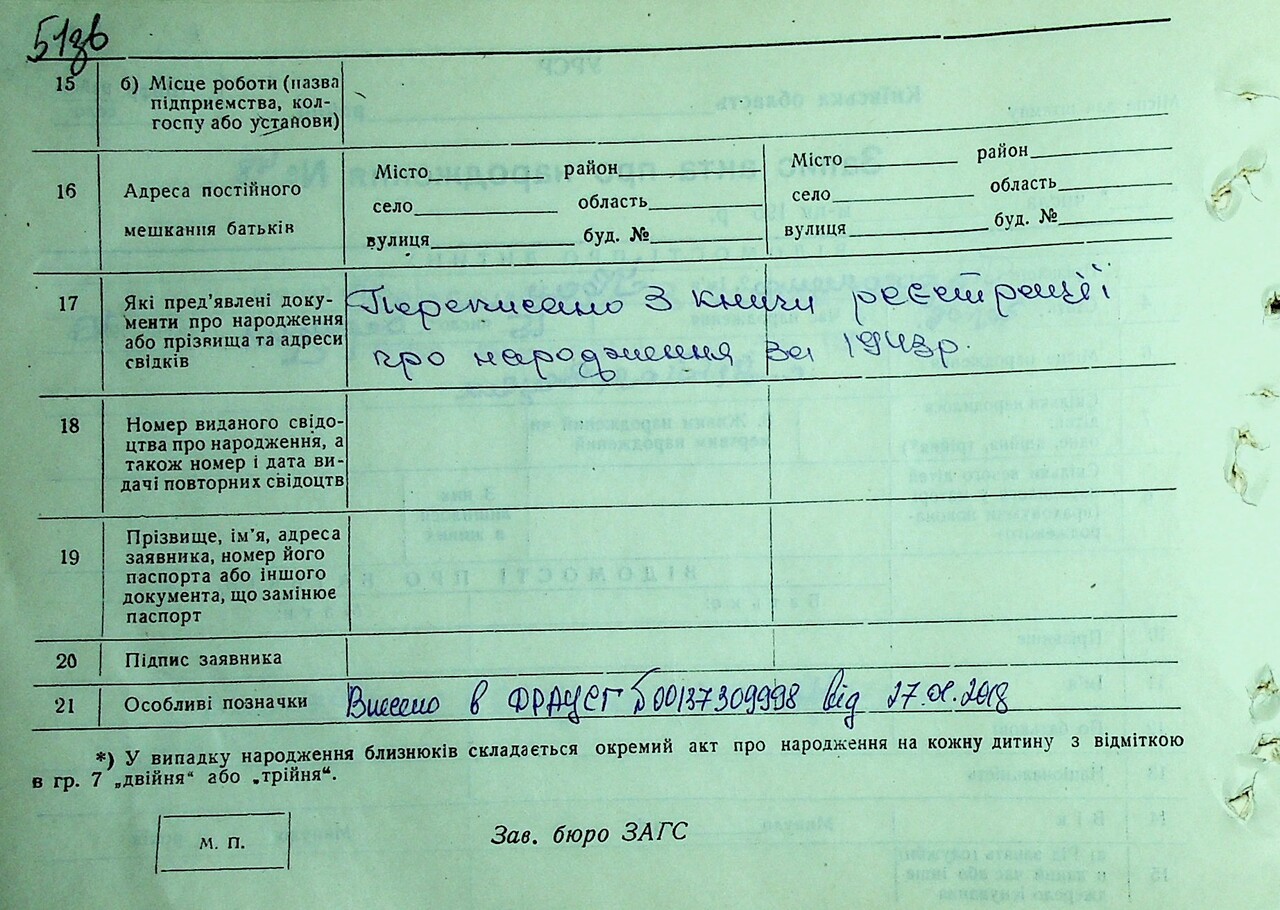 51зв
15 б) Місце роботи (назва
підприємства, кол-
госпу або установи)
16 Адреса постійного
мешкання батьків
Місто район
село область
вулиця буд. №
Місто район
село область
вулиця буд. №
17 Які пред’явлені доку-
менти про народження
або прізвища та адреси
свідків
Переписано з книги реєстрації
про народження за 1943р.
18 Номер виданого свідо-
цтва про народження, а
також номер і дата ви-
дачі повторних свідоцтв
19 Прізвище, ім’я, адреса
заявника, номер його
паспорта або іншого
документа, що замінює
паспорт
20 Підпис заявника
21 Особливі позначки
Внесено в ДРАЦСГ 00137309998 від 27.01.2018
*) У випадку народження близнюків складається окремий акт про народження на кожну дитину з відміткою
в гр. 7 „двійня“ або „трійня“.
М. П.
Зав. бюро ЗАГС